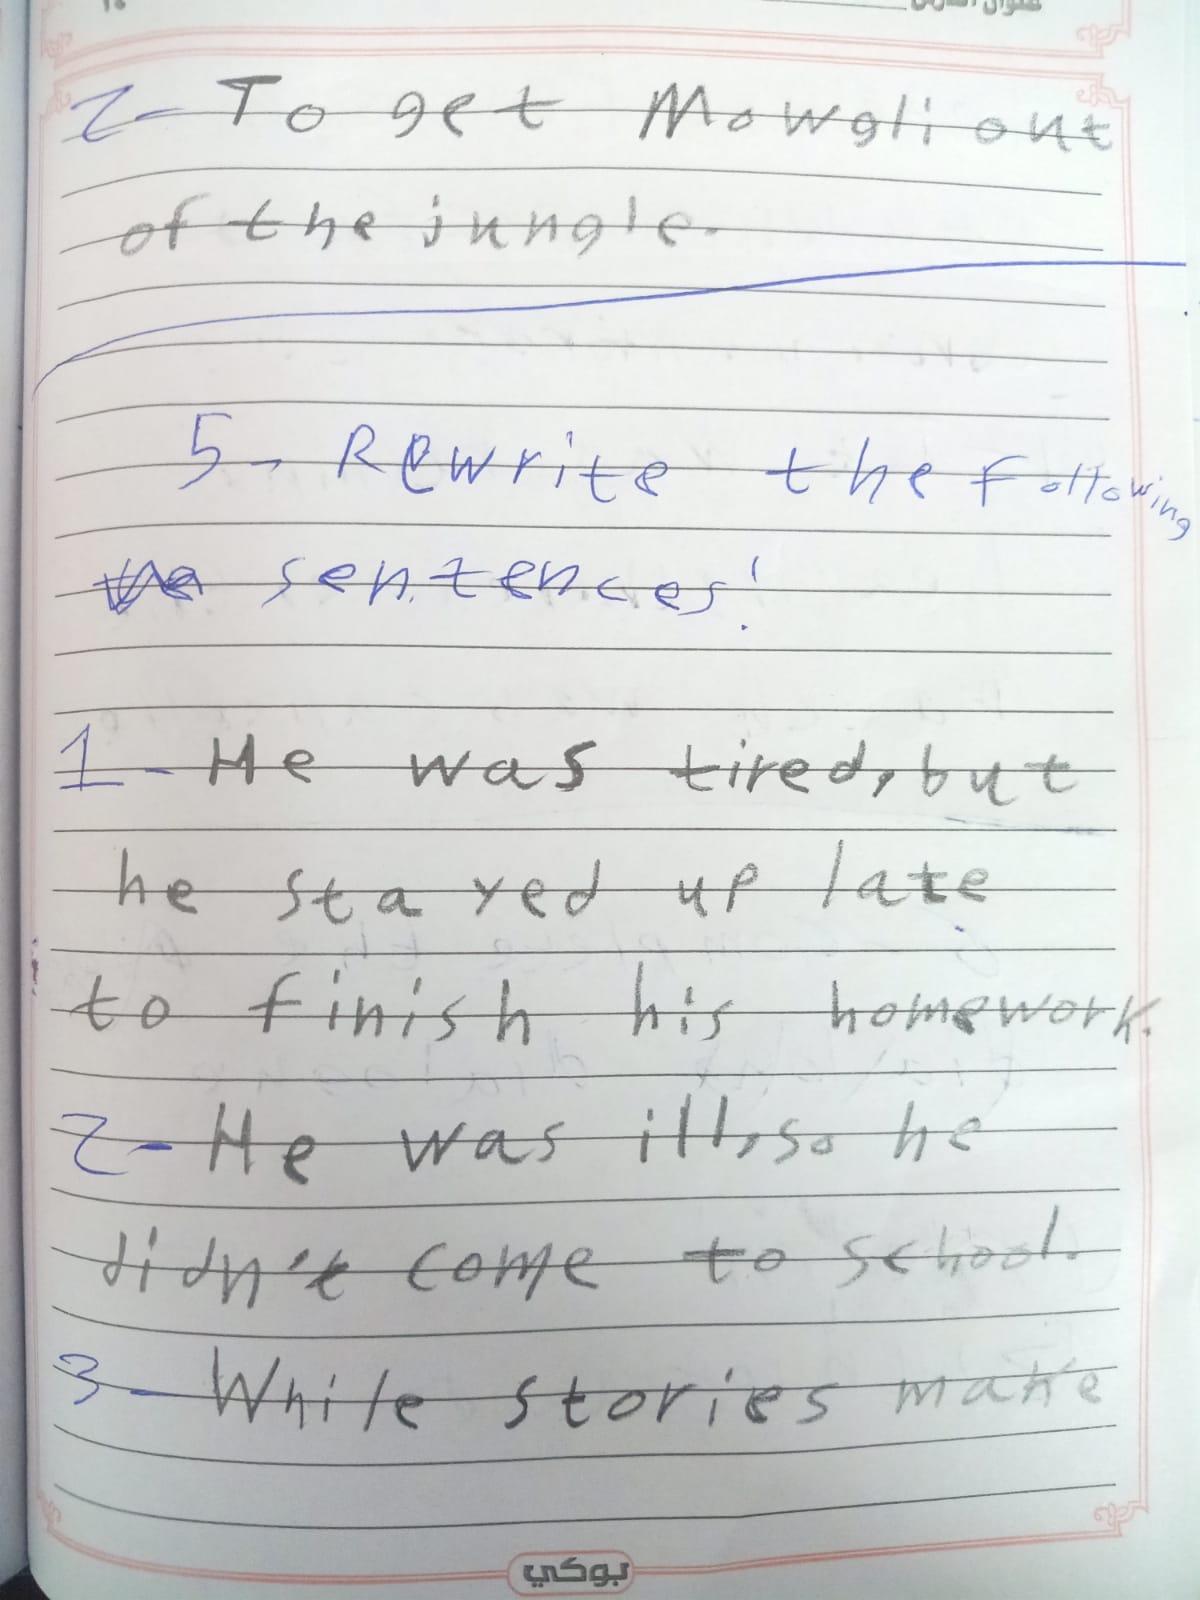 2- To get Mowgli out
of the jungle.
5- Rewrite the following
sentences:
1- He was tired, but
he stayed up late
to finish his homework.
2- He was ill, so he
didn't come to school.
3- While stories make
بوكي